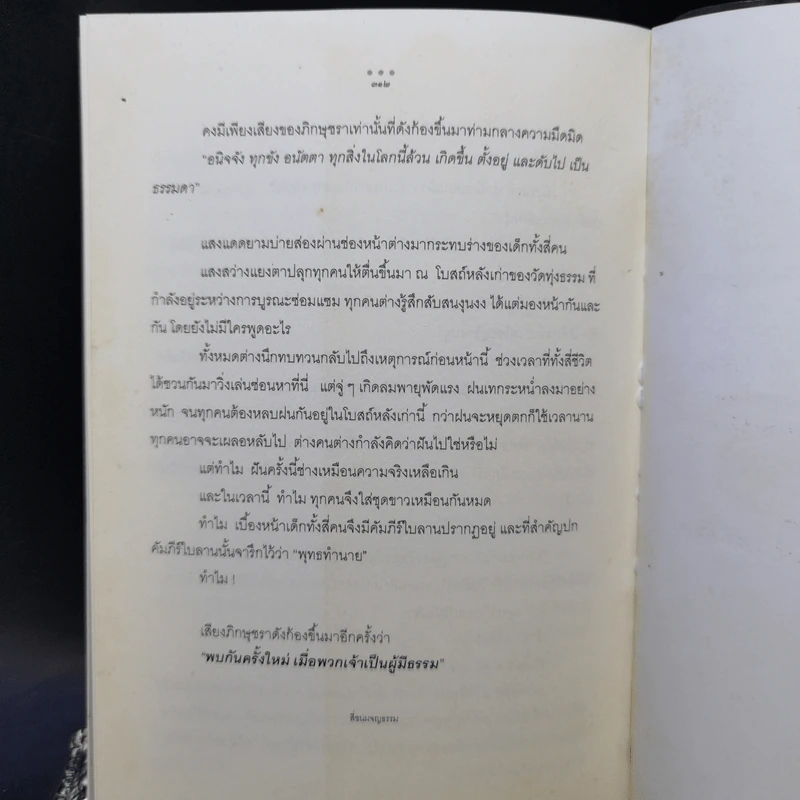 ๓๑๒
คงมีเพียงเสียงของภิกษุชราเท่านั้นที่ดังก้องขึ้นมาท่ามกลางความมืดมิด
“อนิจจัง ทุกขัง อนัตตา ทุกสิ่งในโลกนี้ล้วน เกิดขึ้น ตั้งอยู่ และดับไป เป็น
ธรรมดา”
แสงแดดยามบ่ายส่องผ่านช่องหน้าต่างมากระทบร่างของเด็กทั้งสี่คน
แสงสว่างแยงตาปลุกทุกคนให้ตื่นขึ้นมา ณ โบสถ์หลังเก่าของวัดทุ่งธรรม ที่
กำลังอยู่ระหว่างการบูรณะซ่อมแซม ทุกคนต่างรู้สึกสับสนงุนงง ได้แต่มองหน้ากันและ
กัน โดยยังไม่มีใครพูดอะไร
ทั้งหมดต่างนึกทบทวนกลับไปถึงเหตุการณ์ก่อนหน้านี้ ช่วงเวลาที่ทั้งสี่ชีวิต
ได้ชวนกันมาวิ่งเล่นซ่อนหาที่นี่ แต่จู่ ๆ เกิดลมพายุพัดแรง ฝนเทกระหน่ำลงมาอย่าง
หนัก จนทุกคนต้องหลบฝนกันอยู่ในโบสถ์หลังเก่านี้ กว่าฝนจะหยุดตกก็ใช้เวลานาน
ทุกคนอาจจะเผลอหลับไป ต่างคนต่างกำลังคิดว่าฝันไปใช่หรือไม่
แต่ทำไม ฝันครั้งนี้ช่างเหมือนความจริงเหลือเกิน
และในเวลานี้ ทำไม ทุกคนจึงใส่ชุดขาวเหมือนกันหมด
ทำไม เบื้องหน้าเด็กทั้งสี่คนจึงมีคัมภีร์ใบลานปรากฏอยู่ และที่สำคัญปก
คัมภีร์ใบลานนั้นจารึกไว้ว่า “พุทธทำนาย”
ทำไม !
เสียงภิกษุชราดังก้องขึ้นมาอีกครั้งว่า
“พบกันครั้งใหม่ เมื่อพวกเจ้าเป็นผู้มีธรรม”
สี่ชนผจญธรรม